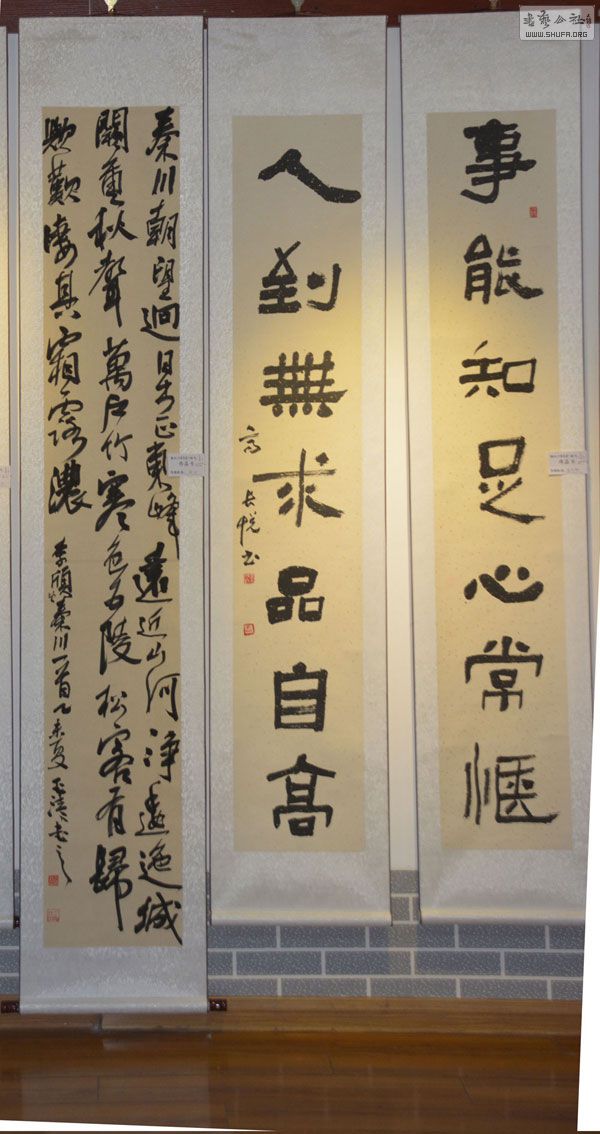 書藝公社
WWW.SHUFA.ORG
事能知足心常愜
人到無求品自高
高长悦书
秦川朝望迥日出正東峰遠近山河淨逶迤城
闕重秋聲萬户竹寒色五陵松客有歸
歟歎凄其霜露濃
李頎秦川一首乙未夏